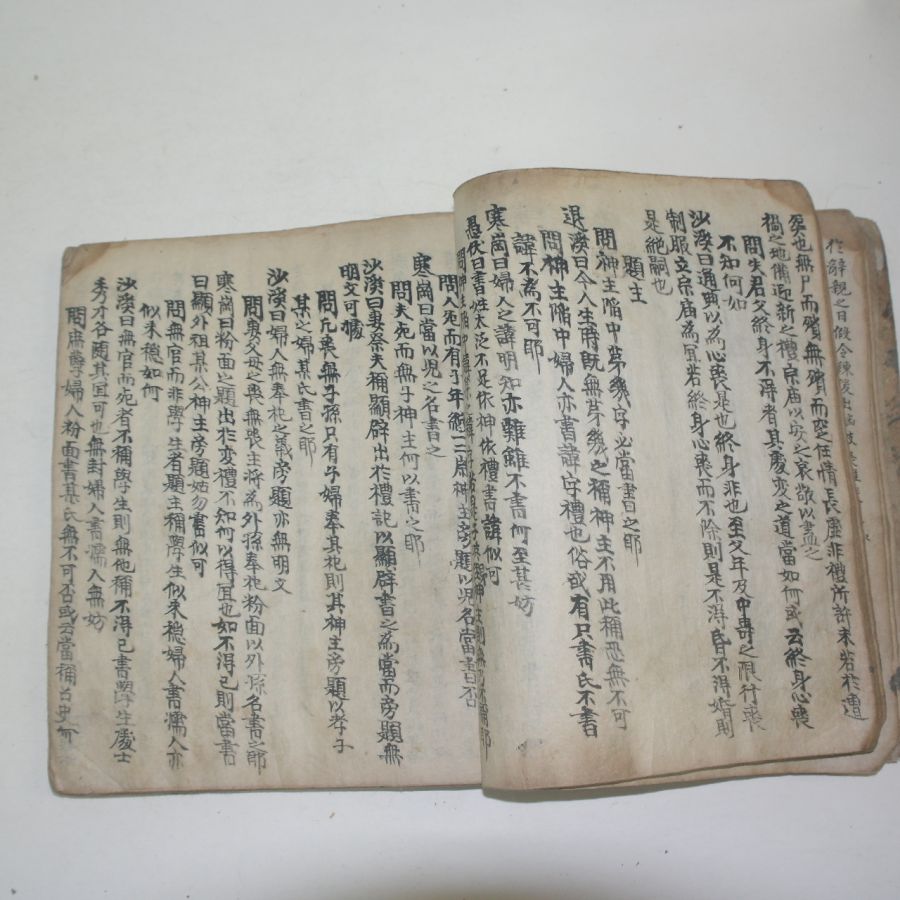 作辭親之日假令練後出
矣也無尸而殯無殯而空任情長廬非禮所許未若於遭
禍之地備迎新之禮宗庙以安之哀敬以盡之
問失君父終身不得者其處變之道當如何或云終身心喪
不知何如
沙溪曰通典以為心喪是也終身非也至父年及中壽之限行喪
制服立宗庙為宜若終身心喪而不除則是不得昏不得婚則
是絶嗣也
題主
問神主陷中第幾字必當書之耶
退溪曰今人生時旣無第幾之稱神主不用此稱恐無不可
問神主陷中婦人亦書諱字禮也俗或有只書氏不書
諱不為不可耶
寒岡曰婦人之諱明知亦難雖不書何至甚妨
愚伏曰書姓太泛不足依神依禮書諱似何
問神主陷中
問人死而有子年纔二歲神主旁題以兒名當書否
寒岡曰當以兒之名書之
問夫死而無子神主何以書之耶
沙溪曰妻祭夫稱顯辟出於禮記以顯辟書之為當而旁題無
明文可據
問凡喪無子孫只有子婦奉其祀則其神主旁題以孝子
某之婦某氏書之耶
沙溪曰婦人無奉祀之義旁題亦無明文
問妻父母之喪無喪主將為外孫奉祀粉面以外孫名書之耶
寒岡曰粉面之題出於變禮不知何以得宜也如不得已則當書
曰顯外祖某公神主旁題姑勿書似可
問無官而非學生者題主稱學生似未穩婦人書孺人亦
似未穩如何
沙溪曰無官而死者不稱學生則無他稱不得已書學生處士
秀才各隨其宜可也無封婦人書孺人無妨
問庶孽婦人粉面書某氏無不可否或云當稱召史何